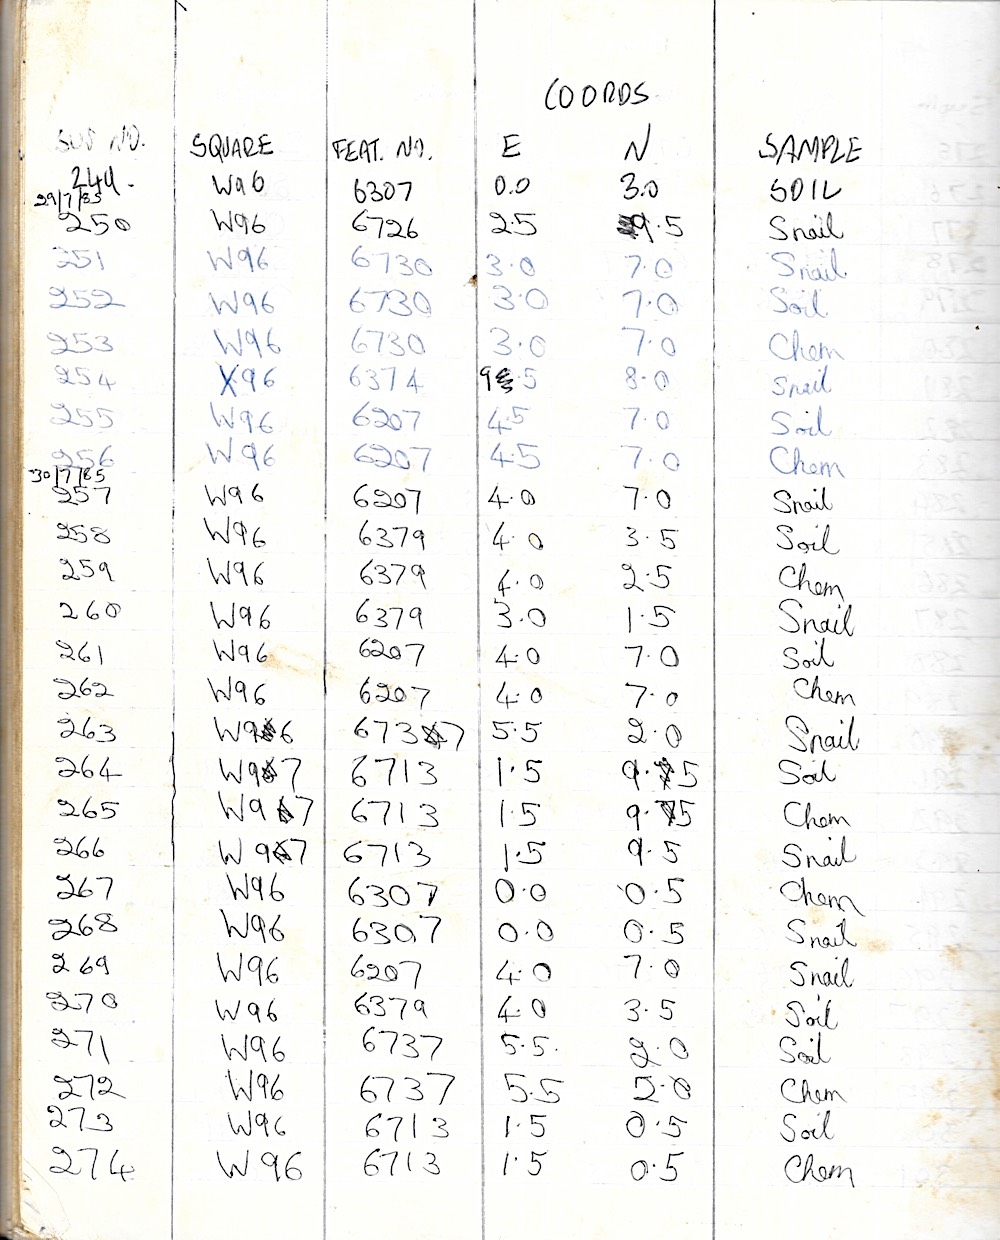 COORDS
SUB NO. SQUARE FEAT. NO. E N SAMPLE
249. W96 6307 0.0 3.0 SOIL
29/7/85
250 W96 6726 2.5 9.5 Snail
251 W96 6730 3.0 7.0 Snail
252 W96 6730 3.0 7.0 Soil
253 W96 6730 3.0 7.0 Chem
254 X96 6374 9.5 8.0 Snail
255 W96 6207 4.5 7.0 Soil
256 W96 6207 4.5 7.0 Chem
30/7/85
257 W96 6207 4.0 7.0 Snail
258 W96 6379 4.0 3.5 Soil
259 W96 6379 4.0 2.5 Chem
260 W96 6379 3.0 1.5 Snail
261 W96 6207 4.0 7.0 Soil
262 W96 6207 4.0 7.0 Chem
263 W96 6737 5.5 2.0 Snail
264 W97 6713 1.5 9.5 Soil
265 W97 6713 1.5 9.5 Chem
266 W97 6713 1.5 9.5 Snail
267 W96 6307 0.0 0.5 Chem
268 W96 6307 0.0 0.5 Snail
269 W96 6207 4.0 7.0 Snail
270 W96 6379 4.0 3.5 Soil
271 W96 6737 5.5. 2.0 Soil
272 W96 6737 5.5 5.0 Chem
273 W96 6713 1.5 0.5 Soil
274 W96 6713 1.5 0.5 Chem